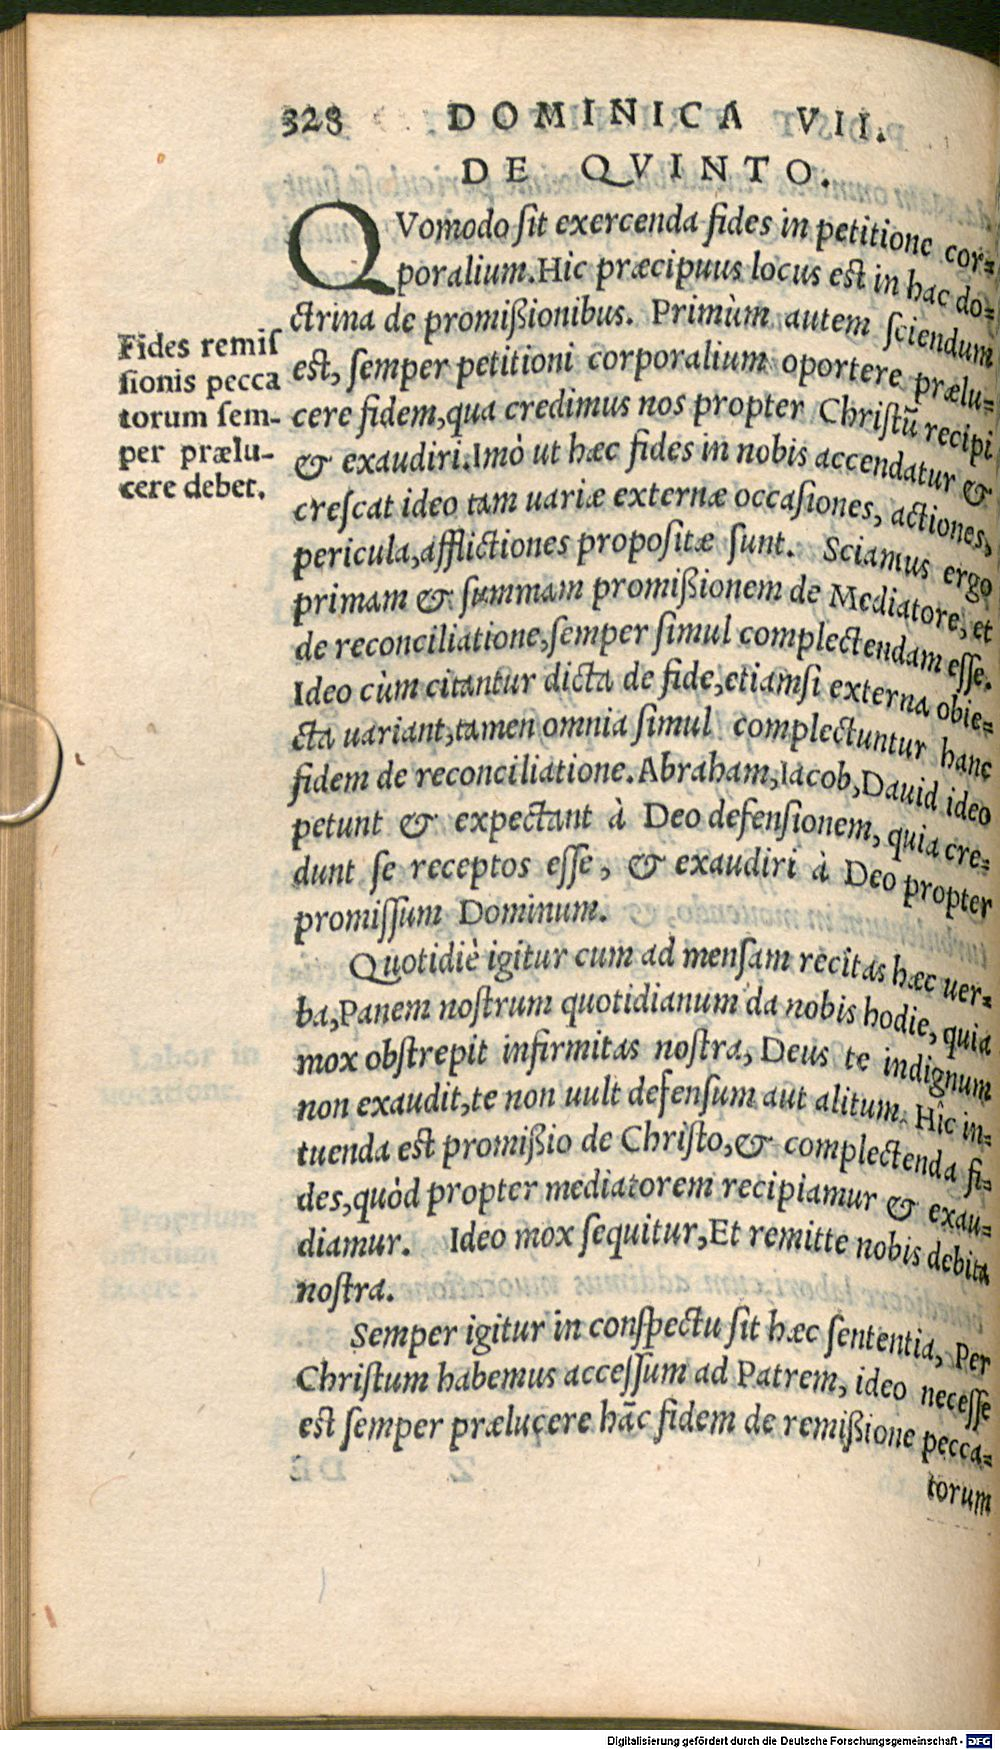 328 DOMINICA VII.
DE QVINTO.
QVomodo ſit exercenda fides in petitione cor=
poralium. Hic præcipuus locus est in hac do=
ctrina de promißionibus. Primùm autem ſciendum
est, ſemper petitioni corporalium oportere prælu=
cere fidem, qua credimus nos propter Chriſtũ recipi
& exaudiri. Imò ut hæc fides in nobis accendatur &
creſcat ideo tam uariæ externæ occaſiones, actiones,
pericula, afflictiones propoſitæ ſunt. Sciamus ergo
primam & ſummam promißionem de Mediatore, et
de reconciliatione, ſemper ſimul complectendam eſſe.
Ideo cùm citantur dicta de fide, etiamſi externa obie=
cta uariant, tamen omnia ſimul complectuntur hanc
fidem de reconciliatione. Abraham, Iacob, Dauid ideo
petunt & expectant à Deo defenſionem, quia cre=
dunt ſe receptos eſſe, & exaudiri à Deo propter
promiſſum Dominum.
Quotidiè igitur cum ad menſam recitas hæc uer=
ba, Panem noſtrum quotidianum da nobis hodie, quia
mox obſtrepit infirmitas noſtra, Deus te indignum
non exaudit, te non uult defenſum aut alitum. Hîc in=
tuenda est promißio de Chriſto, & complectenda fi=
des, quòd propter mediatorem recipiamur & exau=
diamur. Ideo mox ſequitur, Et remitte nobis debita
noſtra.
Semper igitur in conſpectu ſit hæc ſententia, Per
Chriſtum habemus acceſſum ad Patrem, ideo neceſſe
est ſemper prælucere hãc fidem de remißione pecca=
torum
Fides remiſ
ſionis pecca
torum ſem-
per prælu-
cere debet.
Digitalisierung gefördert durch die Deutsche Forschungsgemeinschaft - DFG